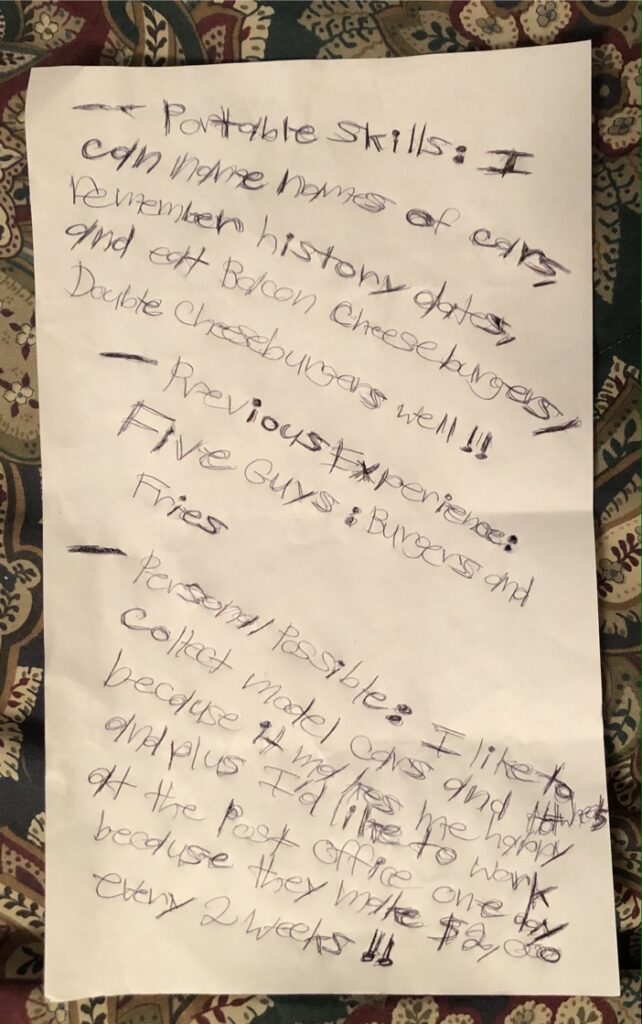 — Portable Skills: I
can name names of cars,
remember history dates,
and eat Bacon Cheeseburgers/
Double Cheeseburgers well!!!
— Previous Experience:
Five Guys: Burgers and
Fries
— Personal Possible: I like to
collect model cars and
because it makes me happy
and plus I'd like to work
at the Post Office one day
because they make $2,000
every 2 weeks!!